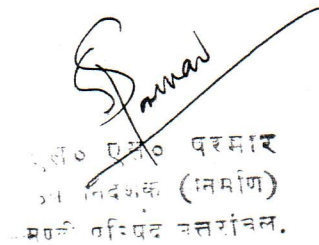 S Parmar
एस० एस० परमार
उप निदेशक (निर्माण)
मण्डी परिषद उत्तरांचल.